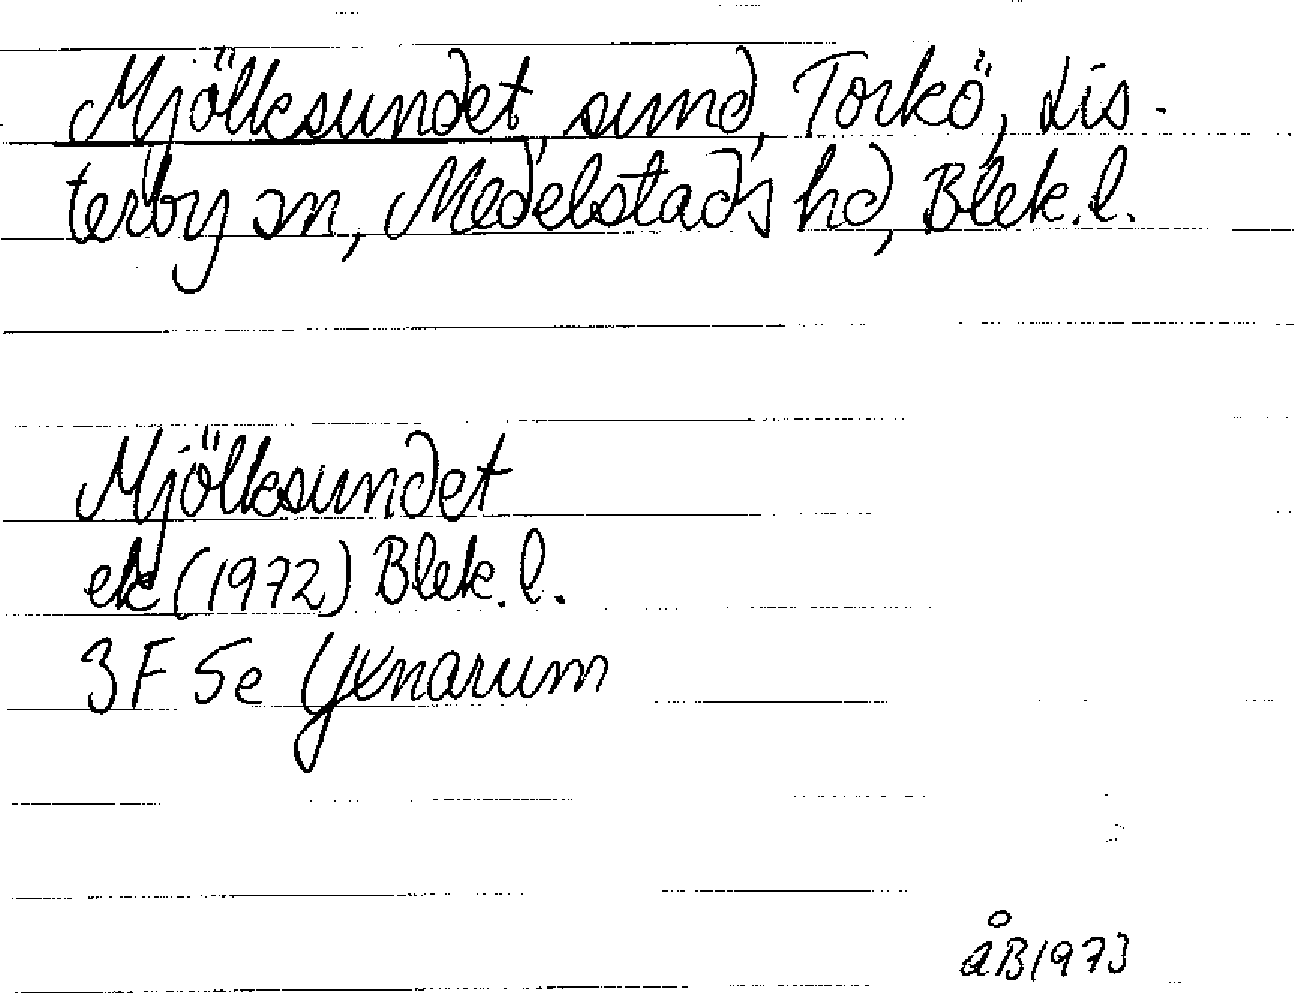 Mjölksundet, sund, Torkö, Lis-
terby sn, Medelstads hd, Blek. l.
Mjölksundet
ek (1972) Blek. l.
3F 5e Yxnarum
ÅB 1973